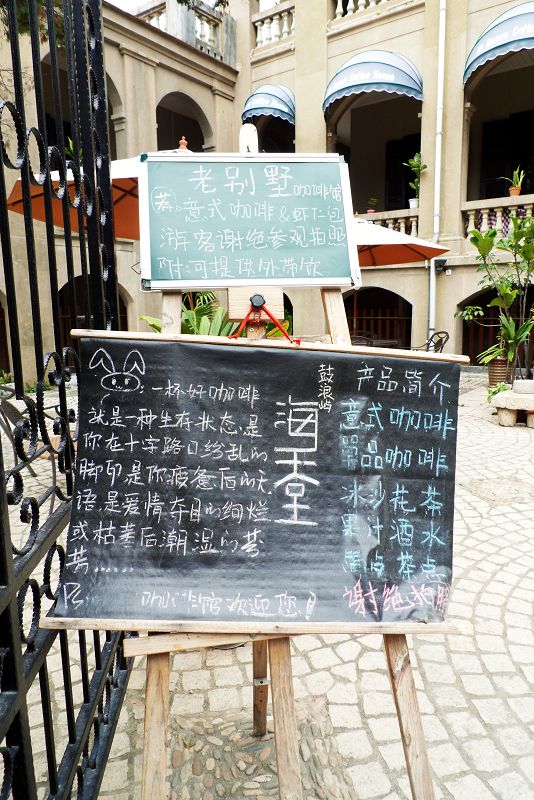 Coffee House
老别墅咖啡馆
意式咖啡&虾仁包
游客谢绝参观拍照
附可提供外带饮
一杯好咖啡
就是一种生存状态.是
你在十字路口纷乱的
脚印是你疲惫后的天
语是爱情夺目的绚烂
或枯萎后潮湿的苔
……
咖啡馆欢迎您!
鼓浪屿
海天堂
产品简介
意式咖啡
单品咖啡
冰沙花茶
果汁酒水
茶点
谢绝拍照